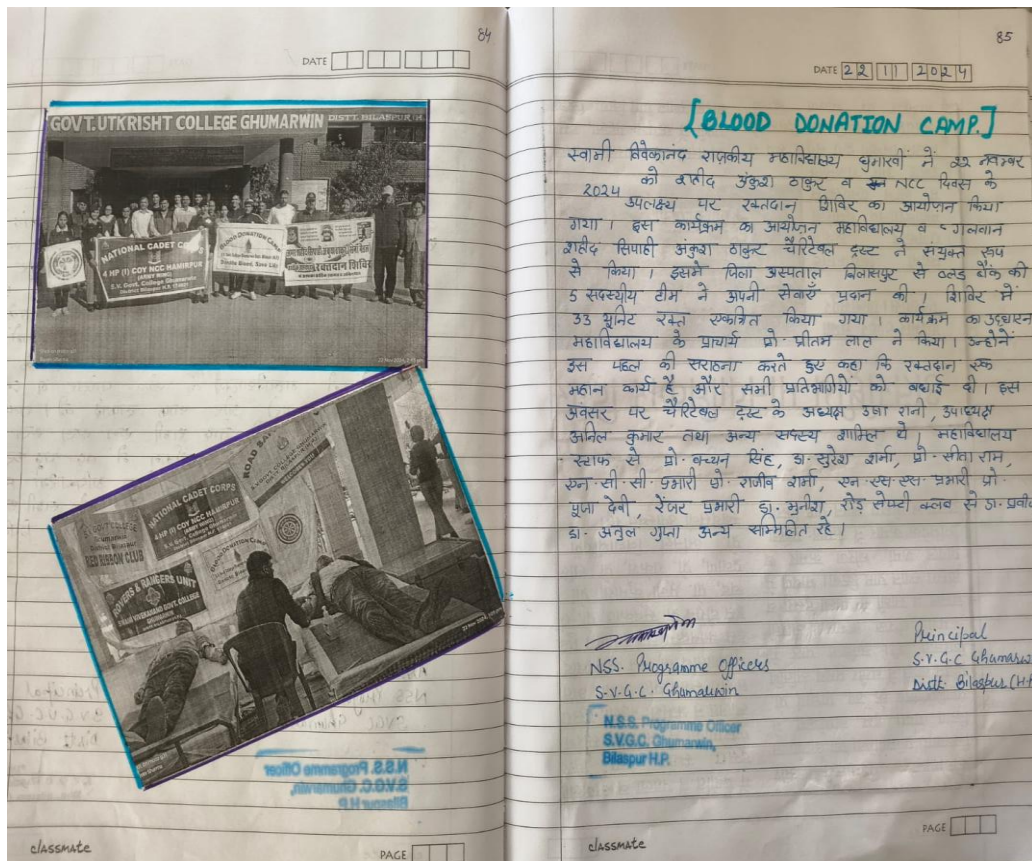 84
DATE
GOVT.UTKRISHT COLLEGE GHUMARWIN DISTT. BILASPUR
NATIONAL CADET CORPS
4 HP (I) COY NCC HAMIRPUR
(ARMY WING)
S.V. Govt. College Ghumarwin
District Bilaspur H.P. 174021
BLOOD DONATION CAMP
Donate Blood, Save Life
रक्तदान शिविर
ROAD SA
NATIONAL CADET CORPS
4 HP (I) COY NCC HAMIRPUR
GOVT COLLEGE
Ghumarwin
District Bilaspur
RED RIBBON CLUB
BLOOD DONATION CAMP
ROVERS & RANGERS UNIT
SWAMI VIVEKANAND GOVT. COLLEGE
GHUMARWIN
N.S.S. Programme Officer
S.V.G.C. Ghumarwin,
Bilaspur H.P
classmate
PAGE
85
DATE 22 11 2024
[BLOOD DONATION CAMP.]
स्वामी विवेकानंद राजकीय महाविद्यालय घुमारवीं में 22 नवम्बर
2024 को शहीद अंकुश ठाकुर व NCC दिवस के
उपलक्ष्य पर रक्तदान शिविर का आयोजन किया
गया। इस कार्यक्रम का आयोजन महाविद्यालय व गलवान
शहीद सिपाही अंकुश ठाकुर चैरिटेबल ट्रस्ट ने संयुक्त रूप
से किया। इसमें जिला अस्पताल बिलासपुर से ब्लड बैंक की
5 सदस्यीय टीम ने अपनी सेवाएँ प्रदान की। शिविर में
33 यूनिट रक्त एकत्रित किया गया। कार्यक्रम का उद्घाटन
महाविद्यालय के प्राचार्य प्रो. प्रीतम लाल ने किया। उन्होनें
इस पहल की सराहना करते हुए कहा कि रक्तदान एक
महान कार्य है और सभी प्रतिभागियों को बधाई दी। इस
अवसर पर चैरिटेबल ट्रस्ट के अध्यक्ष उषा रानी, उपाध्यक्ष
अनिल कुमार तथा अन्य सदस्य शामिल थे। महाविद्यालय
स्टाफ से प्रो. बच्चन सिंह, डा. सुरेश शर्मा, प्रो. सीता राम,
एन.सी.सी. प्रभारी प्रो. राजीव शर्मा, एन.एस.एस. प्रभारी प्रो.
पूजा देवी, रेंजर प्रभारी डा. मुनीश, रोड़ सेफ्टी क्लब से डा. प्रवीण
डा. अतुल गुप्ता अन्य सम्मिलित रहे।
NSS. Programme Officers
S.V.G.C. Ghumarwin
Principal
S.V.G.C Ghumarwin
Distt. Bilaspur (H.P
N.S.S. Programme Officer
S.V.G.C. Ghumarwin,
Bilaspur H.P.
classmate
PAGE